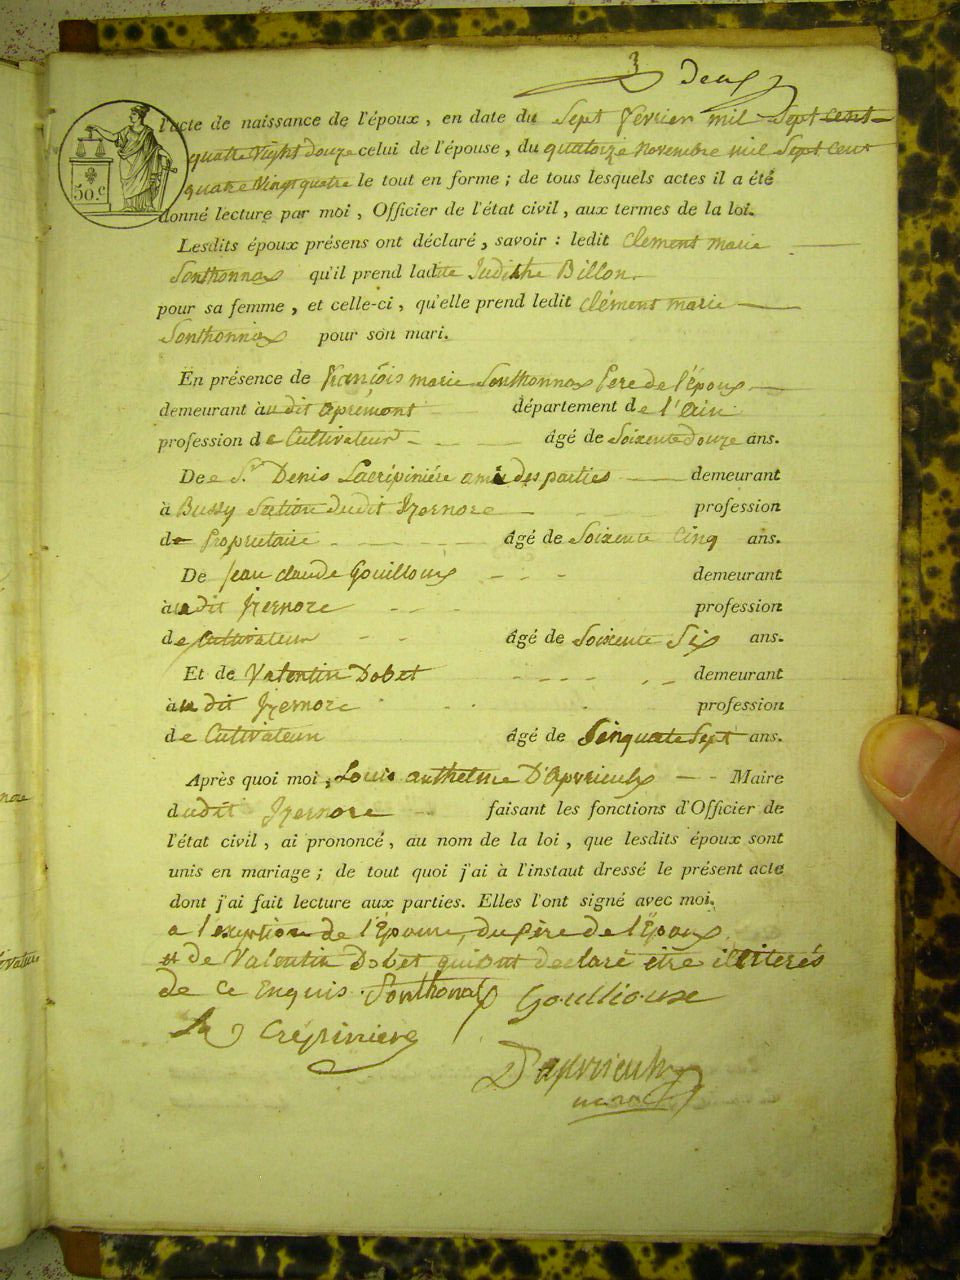 3 Deux
l'acte de naissance de l'époux, en date du Sept février mil Sept Cent
quatre Vight Douze celui de l'épouse, du quatorze Novembre mil Sept Cent
quatre Vingt quatre le tout en forme; de tous lesquels actes il a été
donné lecture par moi, Officier de l'état civil, aux termes de la loi.
50.c
Lesdits époux présens ont déclaré, savoir: ledit Clément marie
Sonthonnax qu'il prend ladite Judithe Billon
pour sa femme, et celle-ci, qu'elle prend ledit Clément marie
Sonthonnax pour son mari.
En présence de François marie Sonthonnax Pere de l'Époux
demeurant audit apremont département de l'ain
profession de Cultivateur âgé de Soixente douze ans.
De Sr. Denis Lacrépinière ami des parties demeurant
à Bussy Section dudit Izernore profession
de Proprietaire âgé de Soixente Cinq ans.
De Jean Claude Gouilloux demeurant
audit Izernore profession
de Cultivateur âgé de Soixente Six ans.
Et de Valentin Dobet demeurant
audit Izernore profession
de Cultivateur âgé de Sinquate Sept ans.
Après quoi moi, Louis anthelme D'Apvrieulx Maire
dudit Izernore faisant les fonctions d'Officier de
l'état civil, ai prononcé, au nom de la loi, que lesdits époux sont
unis en mariage; de tout quoi j'ai à l'instaut dressé le présent acte
dont j'ai fait lecture aux parties. Elles l'ont signé avec moi.
a l'exeption de l'Épouse, du père de l'Époux
et de Valentin Dobet qui ont declaré être illiterés
de Ce Enquis. Sonthonax Goullioux
La Crépiniere
Dapvrieulx
maire